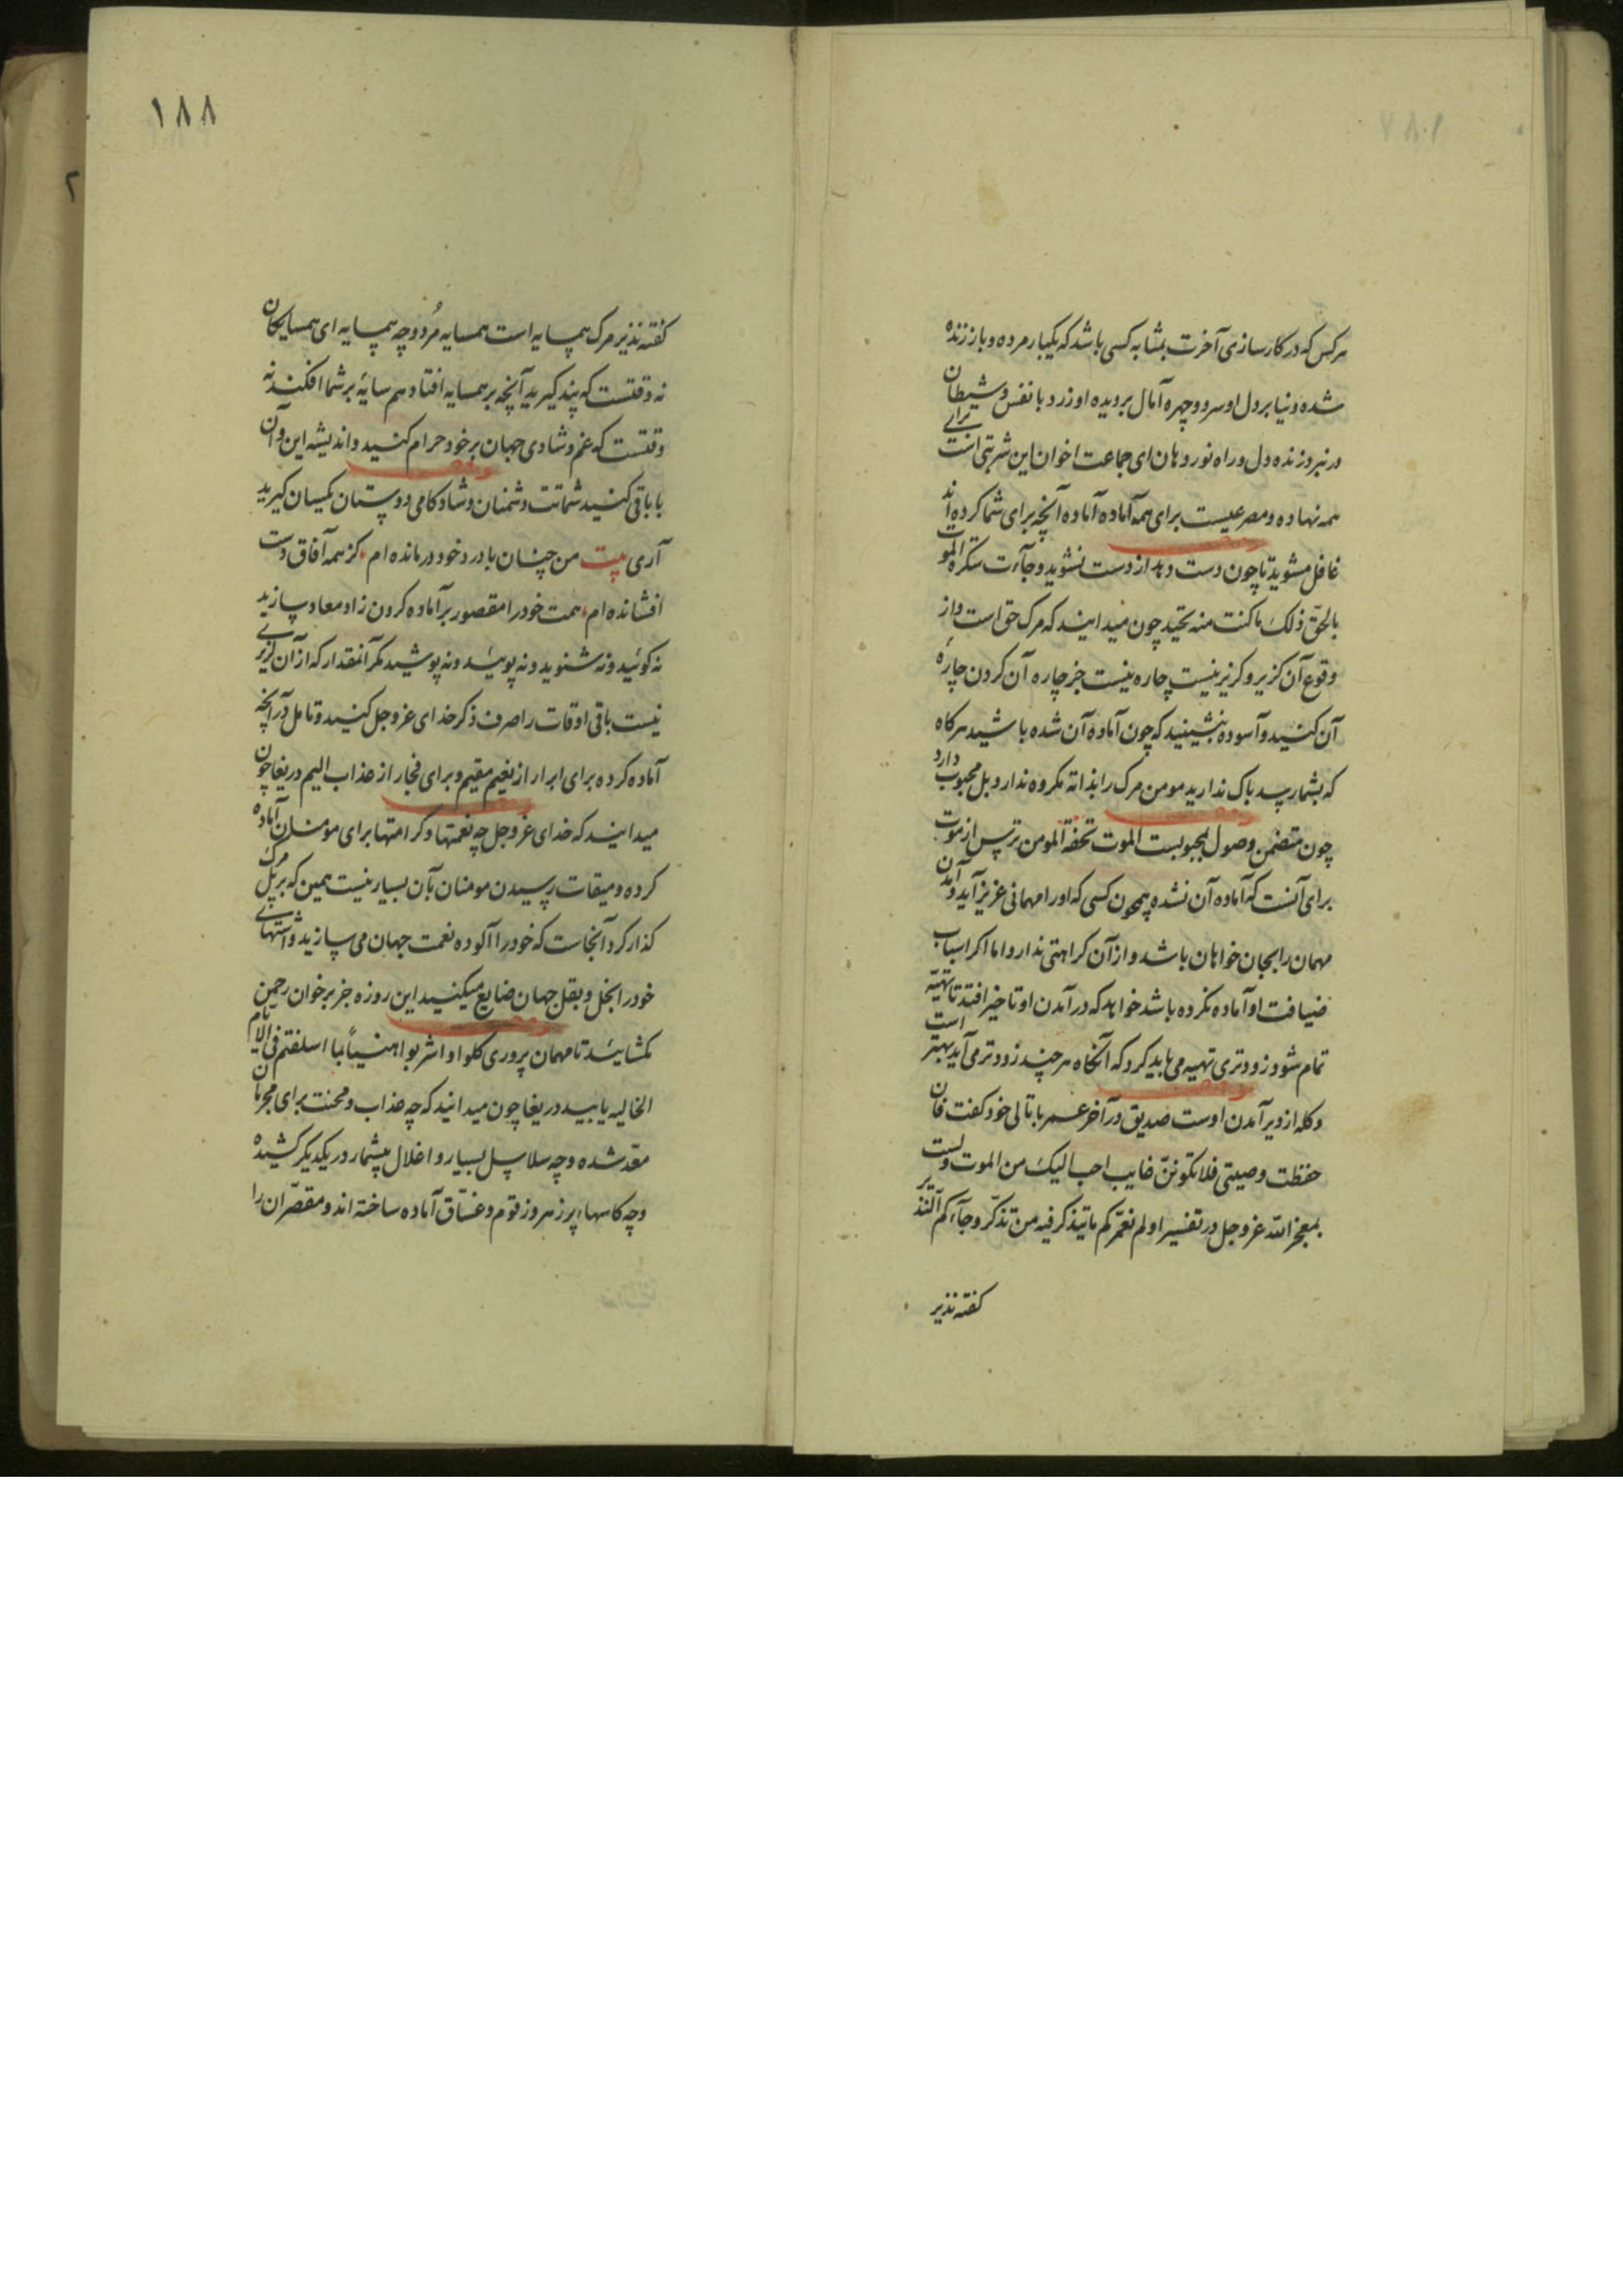 هرکس که در کارسازی آخرت بمثابه کسی باشد که یکبار مرده و باز زنده
شده دنیا بر دل او سرد و چهره آمال بر ویده او زرد و با نفس و شیطان
در نبرد زنده دل و راه نورد هان ای جماعت اخوان این شربتی است برای
همه نهاده و مصرعیست برای همه آماده آماده آنچه برای شما کرده اند
غافل مشوید تا چون دست دهد از دست نشوید وجآءت سکرة الموت
بالحقّ ذلک ما کنت منه تحید چون میدانید که مرک حق است و از
وقوع آن کزیر و کریز نیست چاره نیست جز چاره آن کردن چارهٔ
آن کنید و آسوده بنشینید که چون آماده آن شده باشید هرکاه
که بشما رسد باک ندارید مومن مرک را بذاته مکروه ندارد بل محبوب دارد
چون متضمن وصول بمحبوبست الموت تحفة المومن ترس از موت
برای آنست که آماده آن نشده همچون کسی که او را مهمانی عزیز آید و آمدن
مهمان را بجان خواهان باشد و از آن کراهتی ندارد اما اکر اسباب
ضیافت او آماده نکرده باشد خواهد که در آمدن او تاخیر افتد تا تهیّه
تمام شود زودتری تهیه می باید کرد که آنکاه هرچند زودتر می آید بهتر است
و کله از دیر آمدن اوست صدیق در آخر عمر با تالی خود کفت فان
حفظت وصیتی فلا یکوننّ غایب احب الیک من الموت ولست
بمعجز الله عز و جل در تفسیر اولم نعمّرکم ما یتذکر فیه من تذکّر وجآءکم النذیر
کفته نذیر
۱۸۸
کفته نذیر مرک همسایه است همسایه مُرد و چه همسایه ای همسایکان
نه وقتست که پند کیرید آنچه بر همسایه افتاد هم سایهٔ بر شما افکند نه
وقتست که غم و شادی جهان بر خود حرام کنید و اندیشه این و آن
با باقی کنید شماتت دشمنان و شادکامی دوستان یکسان کیرید
آری بیت من چنان با درد خود درمانده ام، کز همه آفاق دست
افشانده ام، همت خود را مقصور بر آماده کردن زاد معاد سازید
نه کوئید و نه شنوید و نه پوئید و نه پوشید مکر آنمقدار که از آن کزیری
نیست باقی اوقات را صرف ذکر خدای عز و جل کنید و تامل در آنچه
آماده کرده برای ابرار از نعیم مقیم و برای فجار از عذاب الیم دریغا چون
میدانید که خدای عز و جل چه نعمتها و کرامتها برای مومنان آماده
کرده و میقات رسیدن مومنان بآن بسیار نیست همین که بر پل مرک
کذار کرد آنجاست که خود را آلوده نعمت جهان می سازید و اشتهای
خود را بخل و بقل جهان ضایع میکنید این روزه جز بر خوان رحمن
مکشایید تا مهمان پروری کلوا واشربوا هنیئاً بما اسلفتم فی الایام
الخالیه یابید دریغا چون میدانید که چه عذاب و محنت برای مجرمان
معدّ شده و چه سلاسل بسیار و اغلال بیشمار در یکدیکر کشیده
و چه کاسها پر زهر و زقوم و غسّاق آماده ساخته اند و مقصّران را